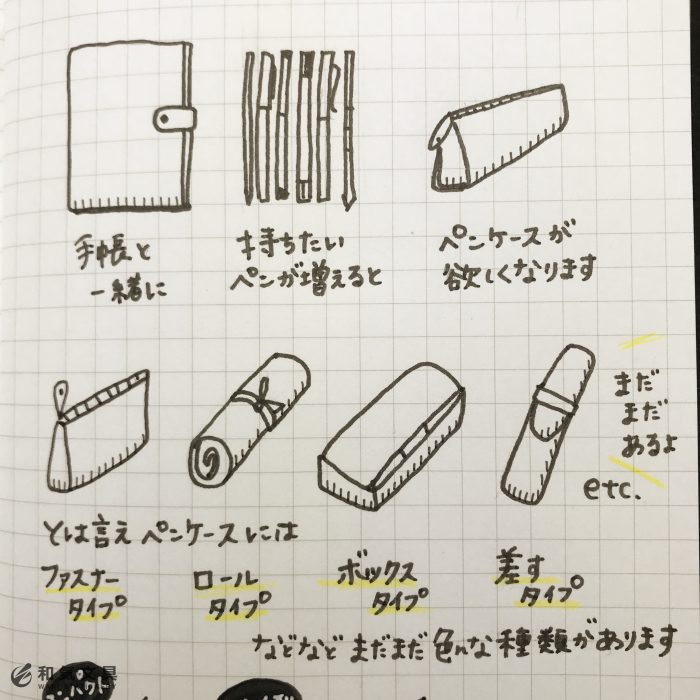 手帳と
一緒に
持ちたい
ペンが増えると
ペンケースが
欲しくなります
まだ
まだ
あるよ
etc.
とは言え ペンケースには
ファスナー
タイプ
ロール
タイプ
ボックス
タイプ
差す
タイプ
などなど まだまだ 色んな種類があります
和気文具
コンパクト